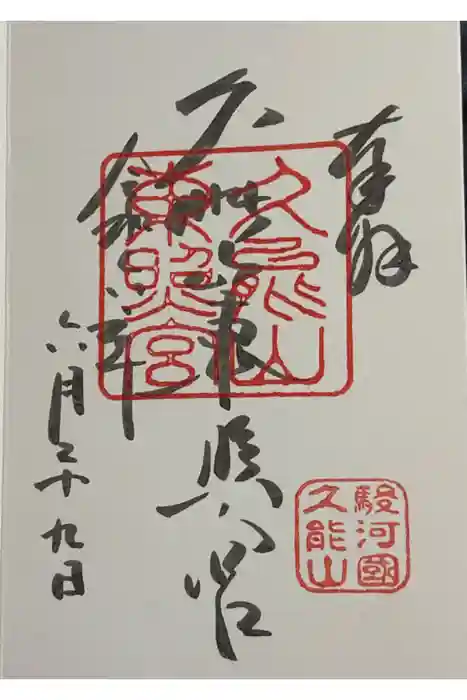 奉拝
久能山東照宮
令和六年
六月二十九日
久能山
東照宮
駿河國
久能山